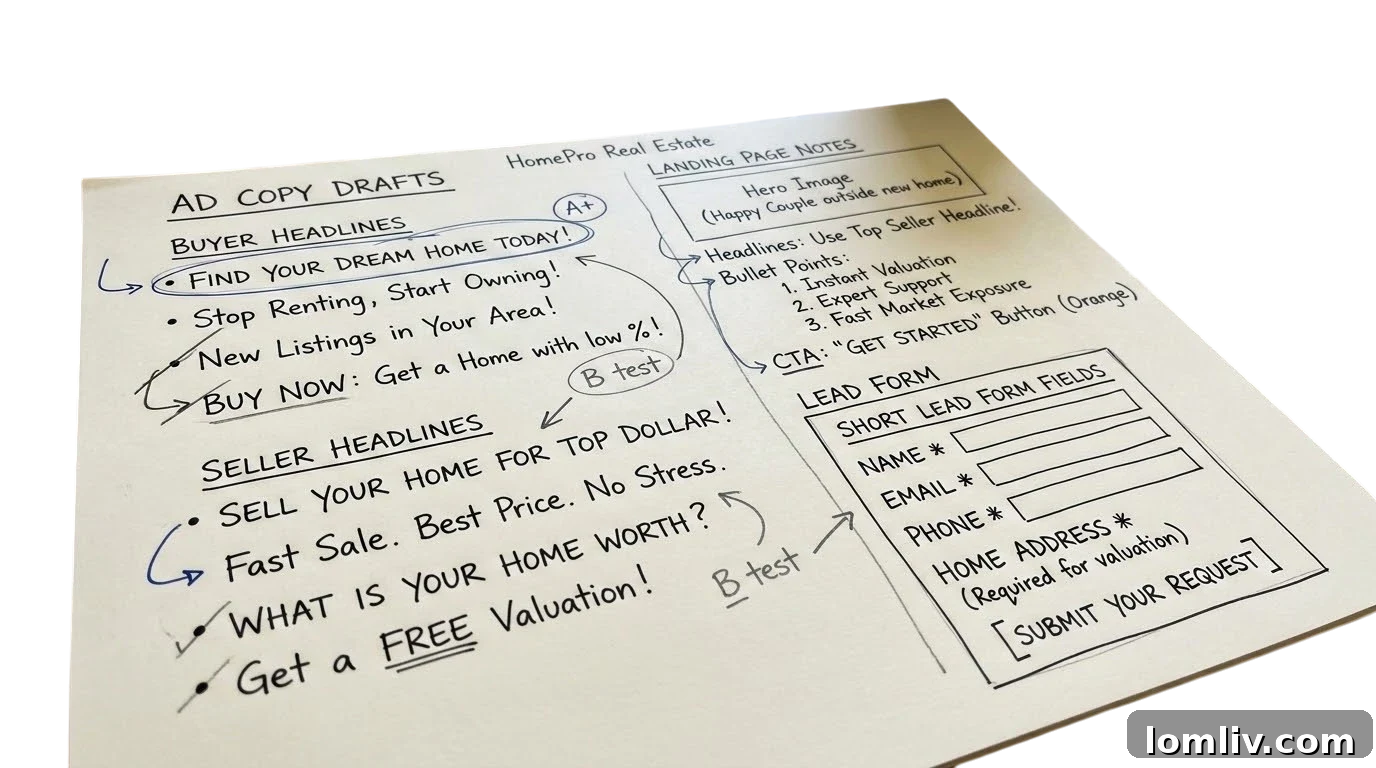 HomePro Real Estate
AD COPY DRAFTS
BUYER HEADLINES
A+
• FIND YOUR DREAM HOME TODAY!
• Stop Renting, Start Owning!
• New Listings in Your Area!
BUY NOW: Get a Home with low %!
B test
SELLER HEADLINES
• SELL YOUR HOME FOR TOP DOLLAR!
Fast Sale. Best Price. No Stress.
• WHAT IS YOUR HOME WORTH?
• Get a FREE Valuation!
B test
LANDING PAGE NOTES
Hero Image
(Happy Couple outside new home)
Headlines: Use Top Seller Headline!
Bullet Points:
1. Instant Valuation
2. Expert Support
3. Fast Market Exposure
CTA: "GET STARTED" Button (Orange)
LEAD FORM
SHORT LEAD FORM FIELDS
NAME *
EMAIL *
PHONE *
HOME ADDRESS *
(Required for valuation)
[SUBMIT YOUR REQUEST]
lomliv.com